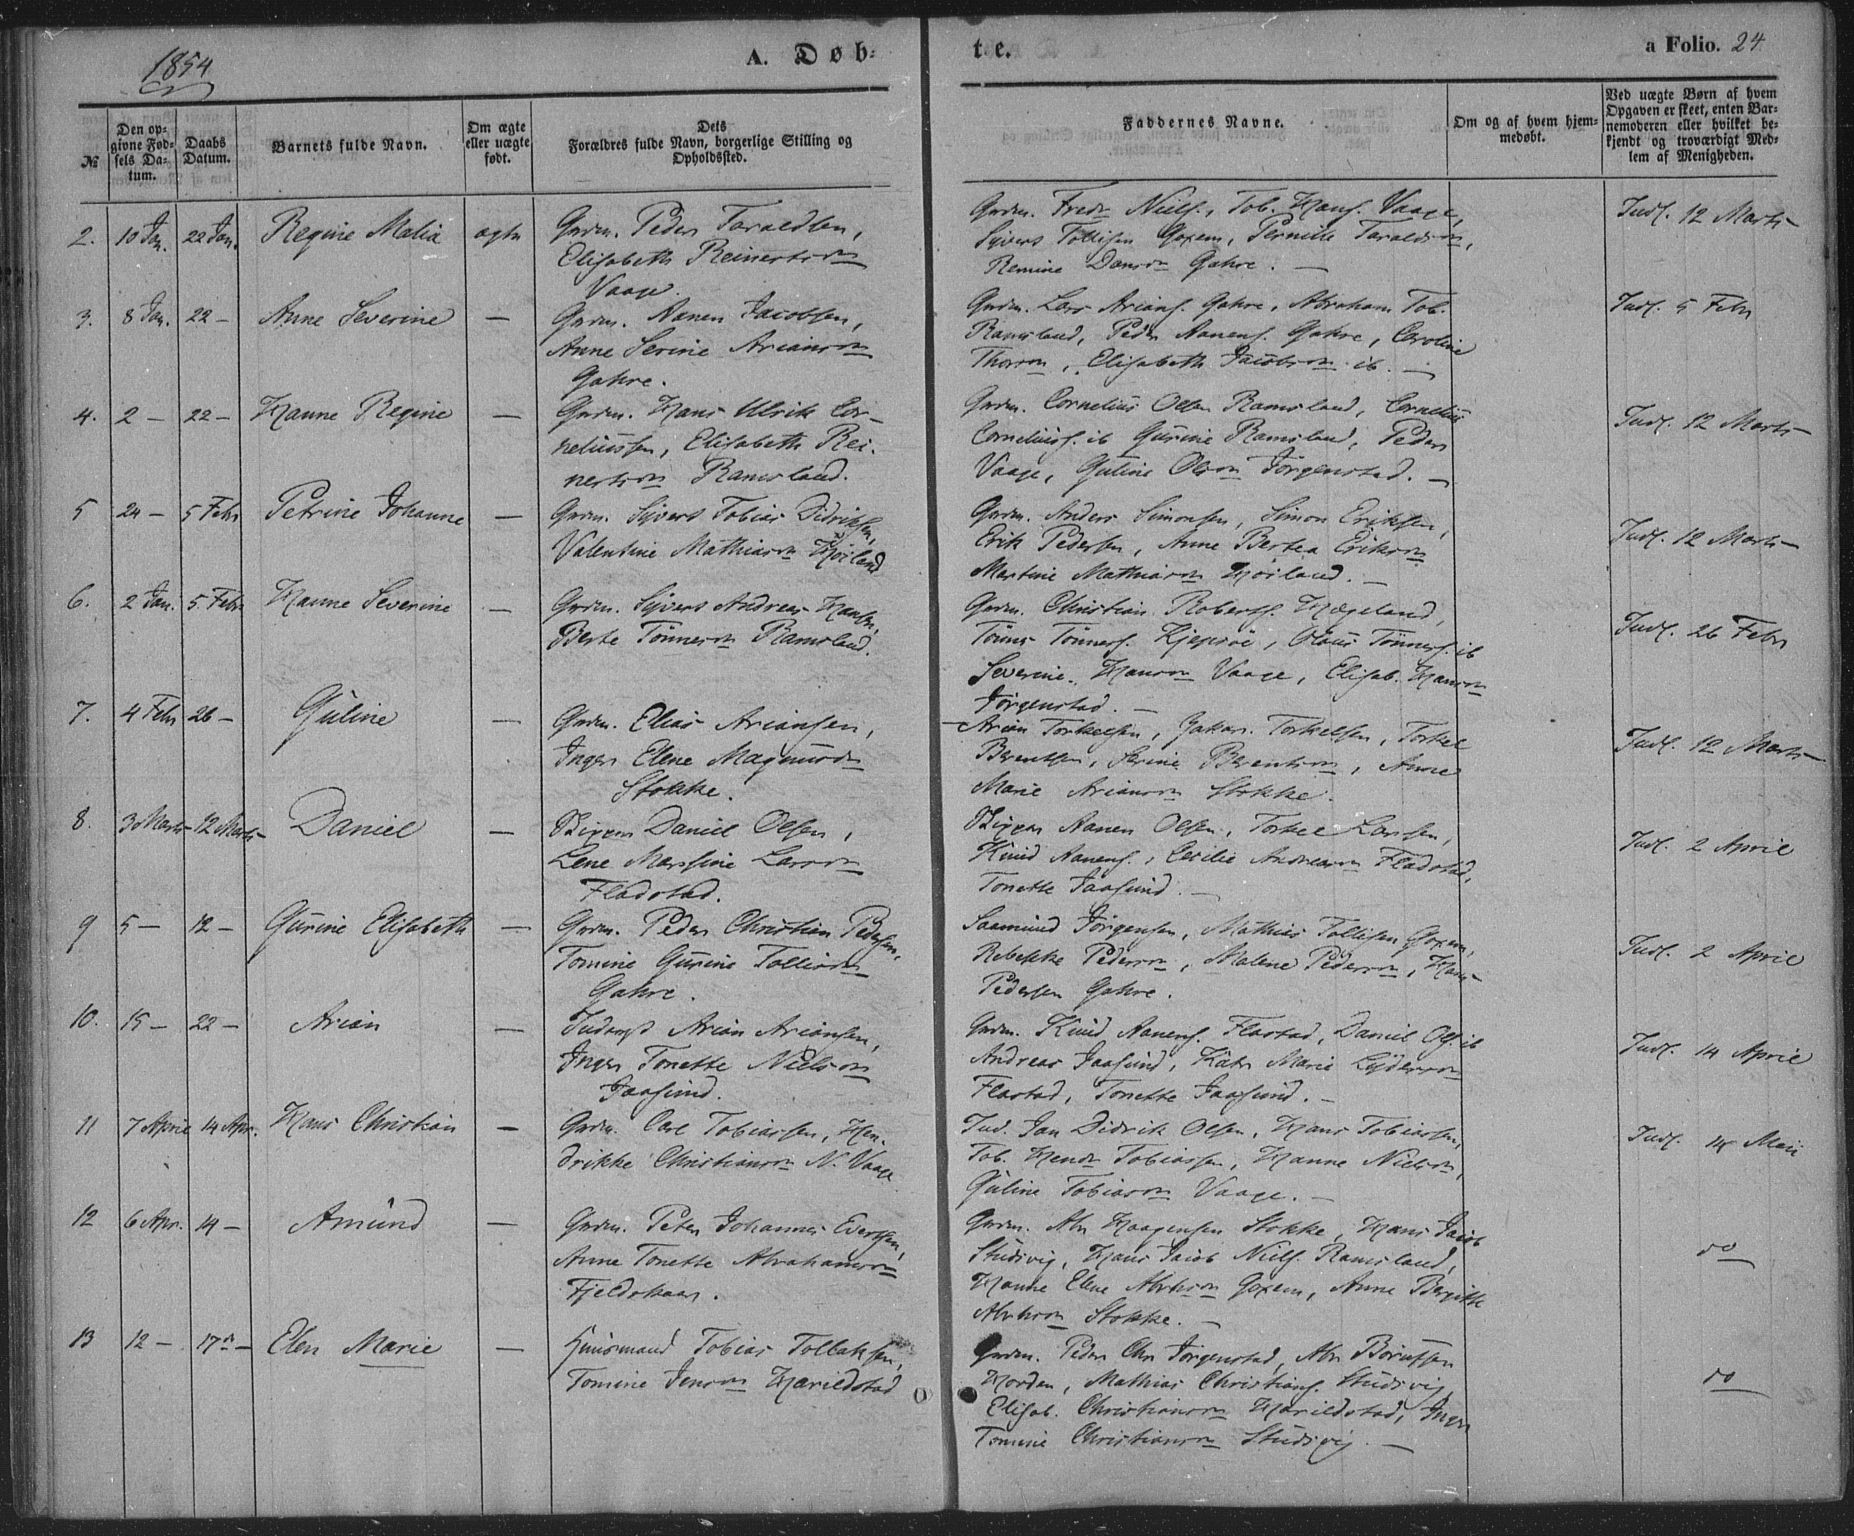 1854
A. Døb-
t e.
a Folio. 24
№
Den op-
givne Fød-
sels Da-
tum.
Daabs
Datum.
Barnets fulde Navn.
Om ægte
eller uægte
født.
Dets
Forældres fulde Navn, borgerlige Stilling og
Opholdssted.
Faddernes Navne.
Om og af hvem hjem-
medøbt.
Ved uægte Børn af hvem
Opgaven er skeet, enten Bar-
nemoderen eller hvilket be-
kjendt og troværdigt Med-
lem af Menigheden.
2. 10 Jan. 22 Jan. Regine Malia ægte
Grdm. Peder Taraldsen,
Elisabeth Reinertsdn
Vaage.
Grdm. Fredr Niels., Tob. Hans. Vaage,
Syvert Tollisen Goxem, Pernille Taraldsdn,
Remine Dansdn Gahre. —
Indl. 12 Marts
3. 8 Jan. 22 — Anne Severine —
Grdm. Aanen Jacobsen,
Anne Serine Ariansdn
Gahre.
Grdm. Lars Arians. Gahre, Abraham Tob.
Ramsland, Peder Aanens. Gahre, Caroline
Thorsdn, Elisabeth Jacobsdn ib. —
Indl. 5 Febr
4. 2 — 22 — Hanne Regine —
Grdm. Hans Ulrik Cor-
neliussen, Elisabeth Rei-
nertsdn Ramsland.
Grdm. Cornelius Olsen Ramsland, Cornelius
Cornelius. ib Gurine Ramsland, Peder
Vaage, Guline Olsdn Jørgenstad. —
Indl. 12 Marts
5 24 — 5 Febr Petrine Johanne —
Grdm. Syvert Tobias Didriksen,
Valentine Mathiasdn Høiland
Grdm. Anders Simonsen, Simon Eriksen,
Erik Pedersen, Anne Bertea Eriksdn
Martine Mathiasdn Høiland. —
Indl. 12 Marts
6. 2 Jan. 5 Febr Hanne Severine —
Grdm. Syvert Andreas Hansen,
Berte Tønnesdn Ramsland.
Grdm. Christian Roberts. Hægeland,
Tønnes Tønnes. Kjepsøe, Olaus Tønnes. ib
Severine Hansdn Vaage, Elisab. Hansdn
Jørgenstad. —
Indl. 26 Febr
7. 4 Febr 26 — Guline —
Grdm. Elias Ariansen,
Inger Elene Magnusdn
Stokke.
Arian Torkelsen, Zakar. Torkelsen, Torkel
Berentsen, Serine Berentsdn, Anne
Marie Ariansdn Stokke.
Indl. 12 Marts
8. 3 Marts 12 Marts Daniel —
Skipper Daniel Olsen,
Lene Marsine Larsdn
Fladstad.
Skipper Aanen Olsen, Torkel Larsen,
Knud Aanens., Cecilie Andreasdn Fladstad,
Tonette Jaasund. —
Indl. 2 April
9 5 — 12 — Gurine Elisabeth —
Grdm. Peder Christian Pedersen,
Tomine Gurine Tollisdn
Gahre.
Saamund Jørgensen, Mathias Tollisen Goxem,
Rebekke Pedersdn, Malene Pedersdn, Hans
Pedersen Gahre.
Indl. 2 April
10. 15 — 22 — Arian —
Inderst Arian Ariansen,
Inger Tonette Nielsdn
Jaasund.
Grdm. Knud Aanens. Flastad, Daniel Ols. ib
Andreas Jaasund, Kath Marie Lydersdn
Flastad, Tonette Jaasund. —
Indl. 14 April
11 7 April 14 Apr. Hans Christian —
Grdm. Carl Tobiassen, Hen-
drikke Christiansdn N. Vaage
Ind. Jan Didrik Olsen, Hans Tobiassen,
Tob. Hendr Tobiassen, Hanne Nielsdn,
Guline Tobiasdn Vaage. —
Indl. 14 Mai
12 6 Apr. 14 — Amund —
Grdm. Peter Johannes Evertsen,
Anne Tonette Abrahamsdn
Fjeldskaar.
Grdm. Abr Haagensen Stokke, Hans Jacob
Studsvig, Hans Jacob Niels. Ramsland,
Hanne Elene Abrhsdn Goxem, Anne Bergitte
Abrhsdn Stokke. —
do
13 12 — 17de — Elen Marie —
Huusmand Tobias Tollaksen,
Tomine Jensdn Harildstad
Grdm. Peder Chr Jørgenstad, Abr Børufsen
Horden, Mathias Christians. Studsvig
Elisab. Christiansdn Harildstad, Inger
Tomine Christiansdn Studsvig. —
do